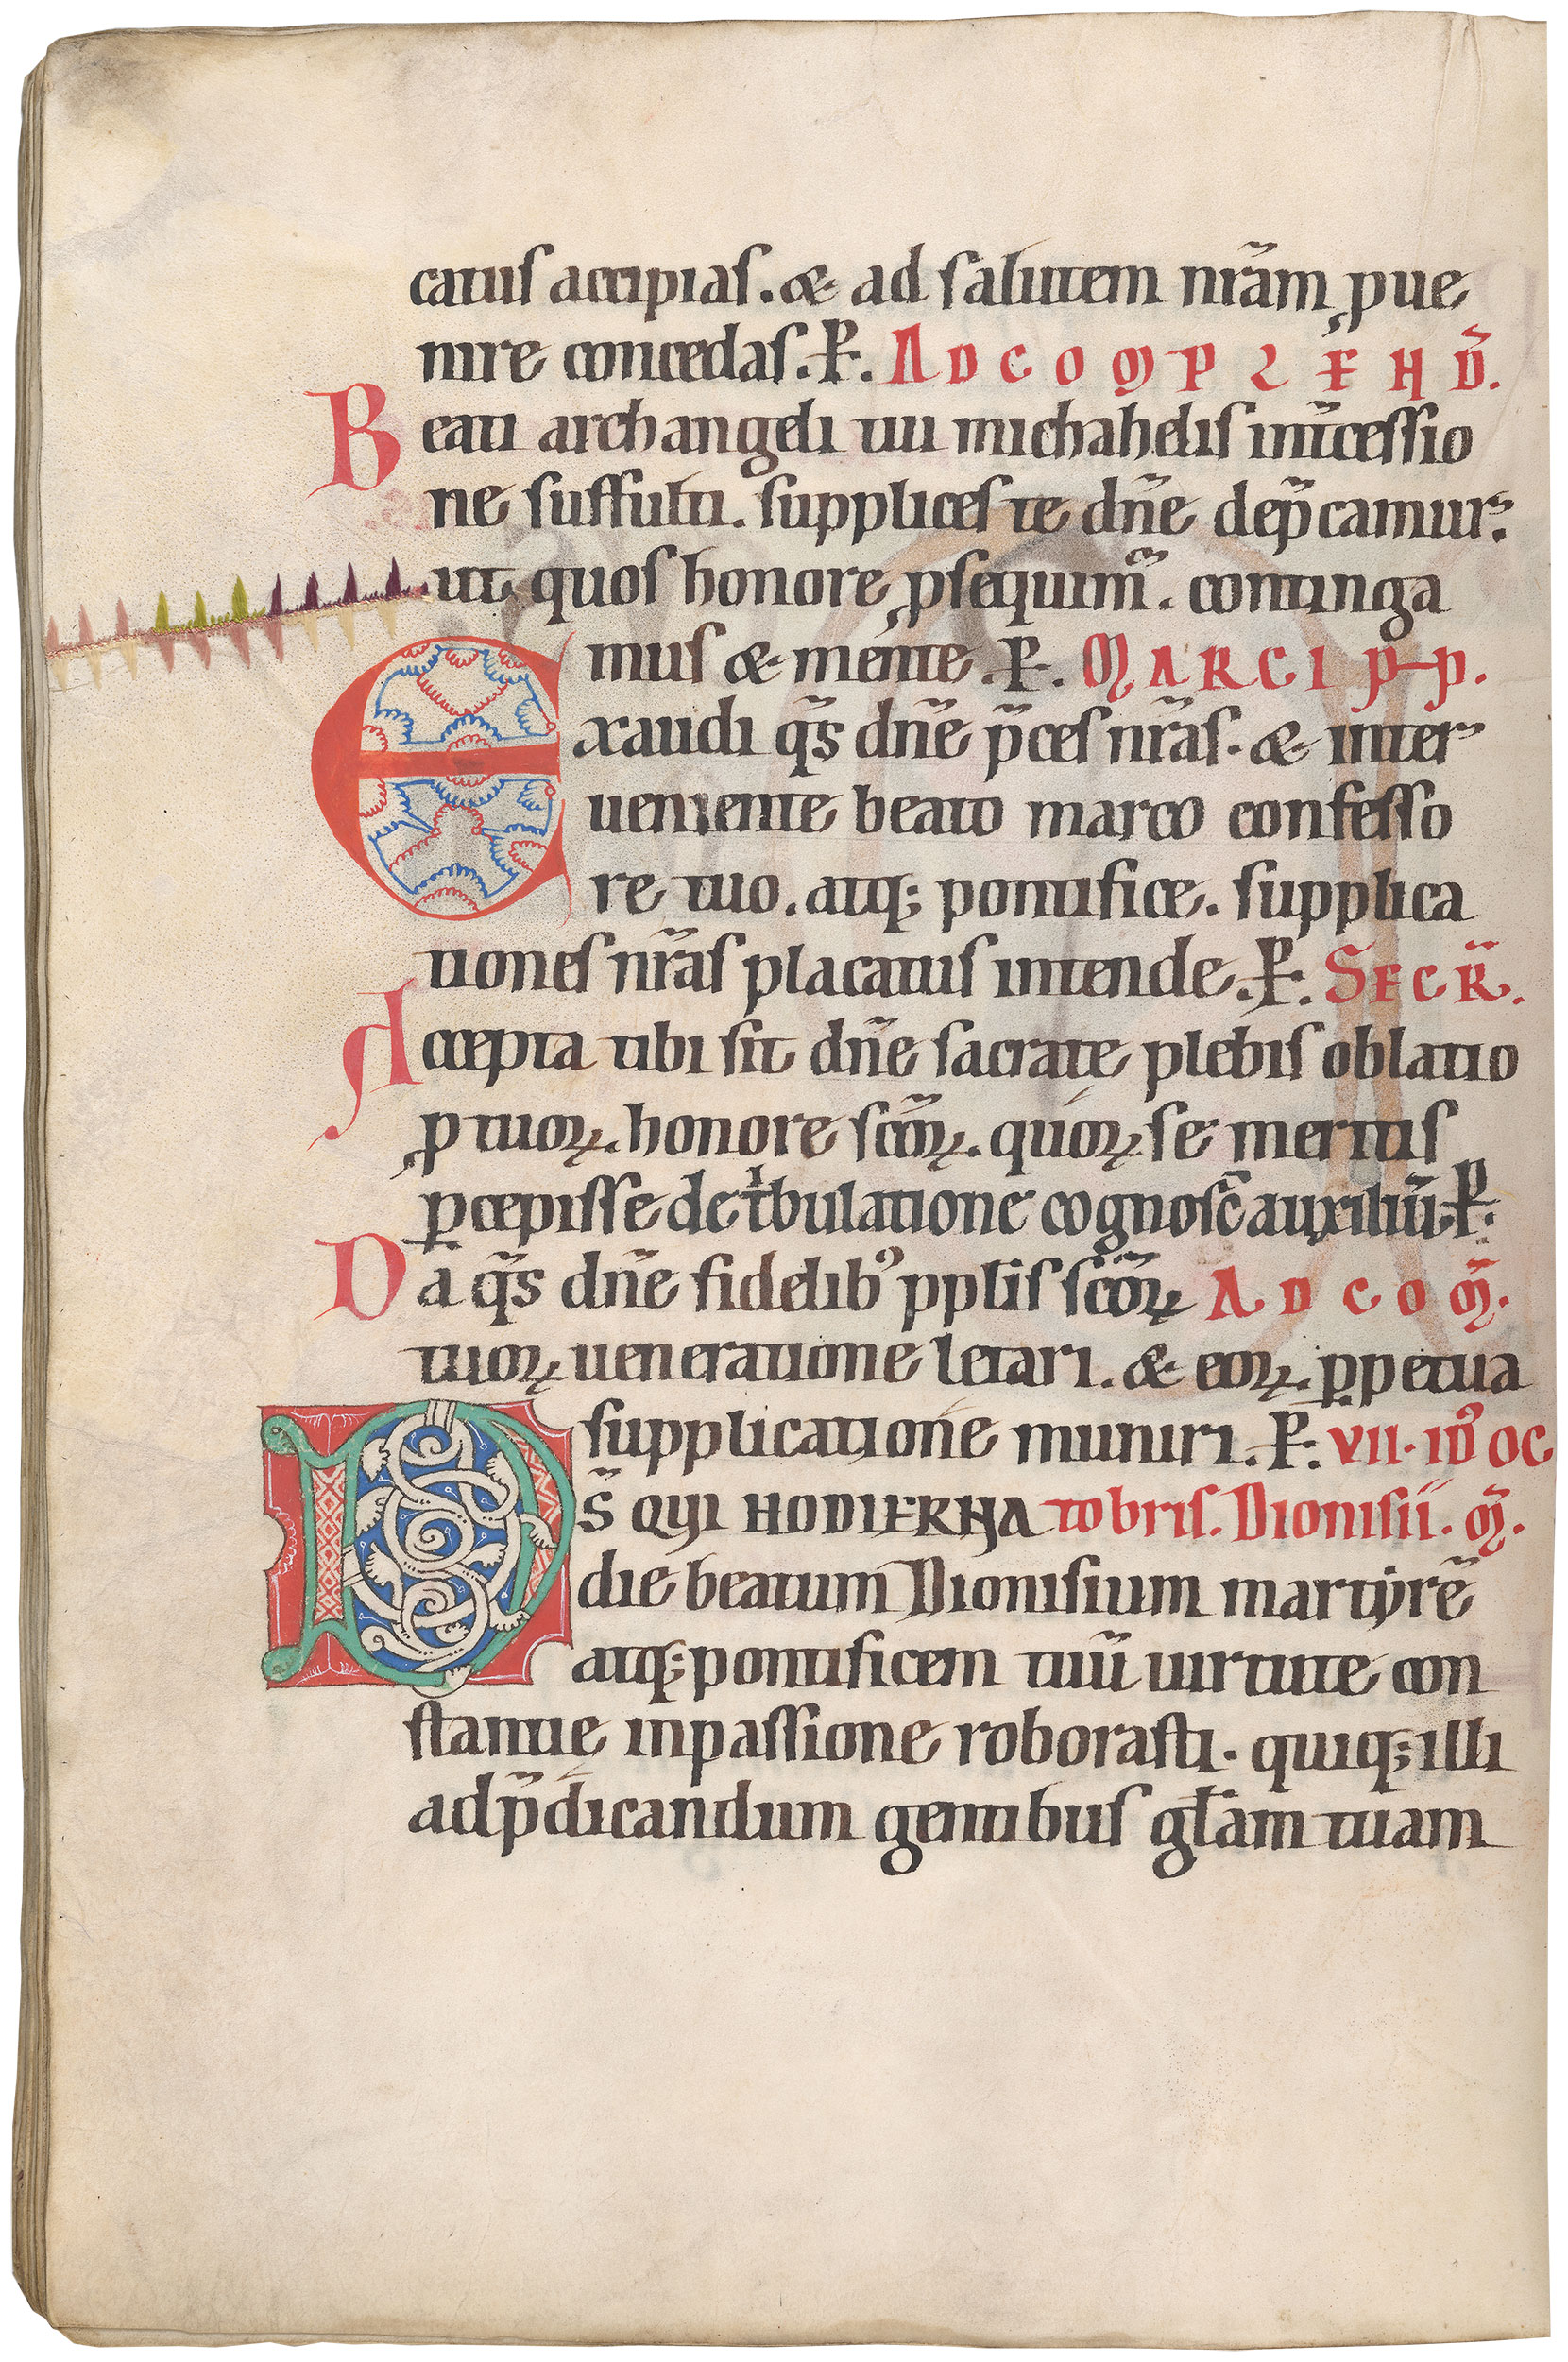 catus accipias. & ad salutem nr̃am ꝓue
nire concedas. P̵. AD COMPLEÑD̃.
Beati archangeli tui michahelis int̃cessio
ne suffulti. supplices te dñe dep̃camur.
ut quos honore ꝓsequim̃. continga
mus & mente. P̵. MARCI P̵P̵.
Exaudi q̃s dñe p̃ces nr̃as. & inter
ueniente beato marco confesso
re tuo. atq; pontifice. supplica
tiones nr̃as placatus intende. P̵. SECR̃.
Accepta tibi sit dñe sacratę plebis oblatio
ꝓ tuoꝝ. honore sc̃oꝝ. quoꝝ se meritis
ꝑcepisse de tͥbulatione cognosc̃ auxiliũ. P̵.
Da q̃s dñe fidelibꝰ pplis sc̃oꝝ AD COM̃.
tuoꝝ ueneratione letari. & eoꝝ. ꝑpetua
supplicatione muniri. P̵. VII. IDꝰ OC
DS̃ QUI HODIERNA tobris. Dionisii. M̃.
die beatum Dionisium martyrẽ
atq; pontificem tuũ uirtute con
stantię in passione roborasti. quiq; illi
ad p̃dicandum gentibus gl̃am tuam